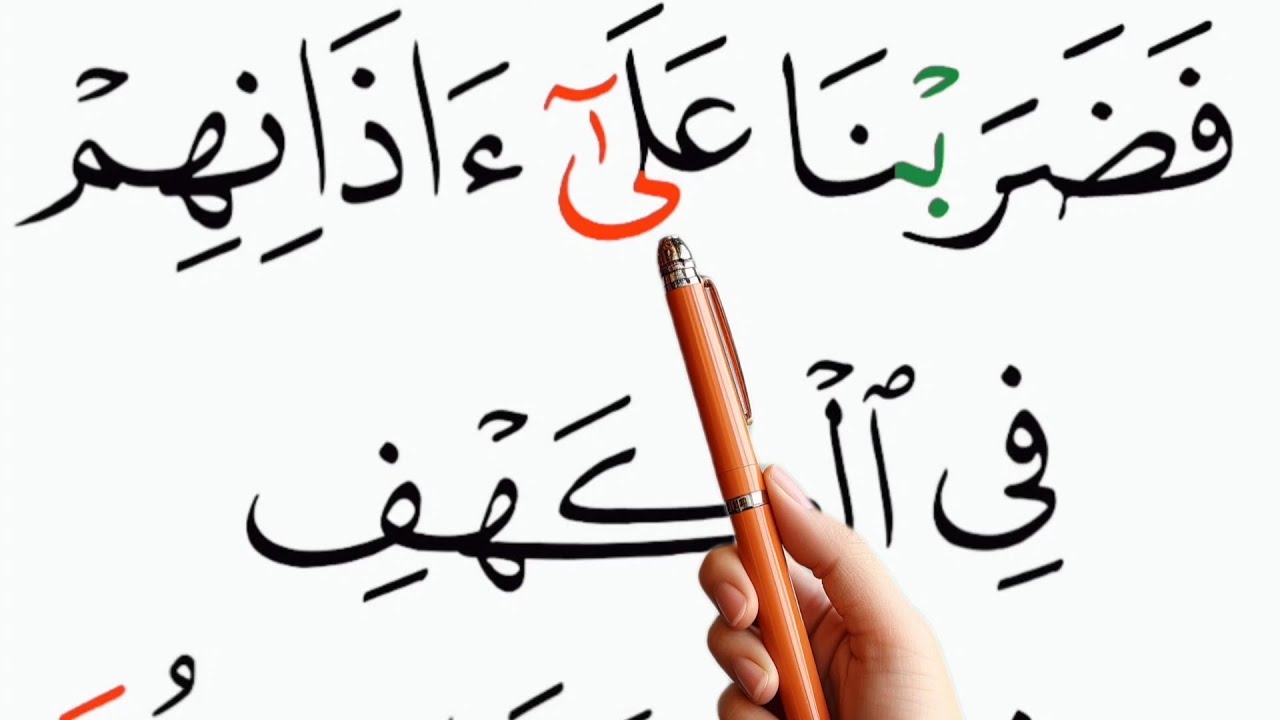 فَضَرَبْنَا عَلَىٰٓ ءَاذَانِهِمْ
فِي ٱلْكَهْفِ